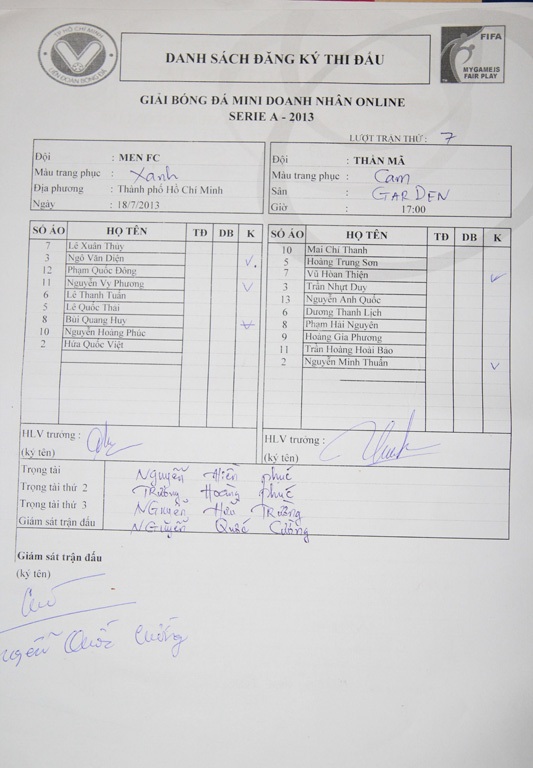 TP HỒ CHÍ MINH
LIÊN ĐOÀN BÓNG ĐÁ
DANH SÁCH ĐĂNG KÝ THI ĐẤU
FIFA
MY GAME IS
FAIR PLAY
GIẢI BÓNG ĐÁ MINI DOANH NHÂN ONLINE
SERIE A - 2013
LƯỢT TRẬN THỨ : 7
Đội : MEN FC
Màu trang phục : Xanh
Địa phương : Thành phố Hồ Chí Minh
Ngày : 18/7/2013
Đội : THÀN MÃ
Màu trang phục : Cam
Sân : GARDEN
Giờ : 17:00
SỐ ÁO HỌ TÊN TĐ DB K
7 Lê Xuân Thủy
3 Ngô Văn Diện
12 Phạm Quốc Đông
11 Nguyễn Vy Phương
6 Lê Thanh Tuấn
5 Lê Quốc Thái
8 Bùi Quang Huy
10 Nguyễn Hoàng Phúc
2 Hứa Quốc Việt
SỐ ÁO HỌ TÊN TĐ DB K
10 Mai Chí Thanh
5 Hoàng Trung Sơn
7 Vũ Hòan Thiện
3 Trần Nhựt Duy
13 Nguyễn Anh Quốc
6 Dương Thanh Lịch
8 Phạm Hải Nguyên
9 Hoàng Gia Phương
11 Trần Hoàng Hoài Bảo
2 Nguyễn Minh Thuấn
HLV trưởng :
(ký tên)
HLV trưởng :
(ký tên)
Trọng tài Nguyễn Hiền Phúc
Trọng tài thứ 2 Trương Hoàng Phúc
Trọng tài thứ 3 Nguyễn Hữu Trường
Giám sát trận đấu Nguyễn Quốc Cường
Giám sát trận đấu
(ký tên)
Quốc Cường